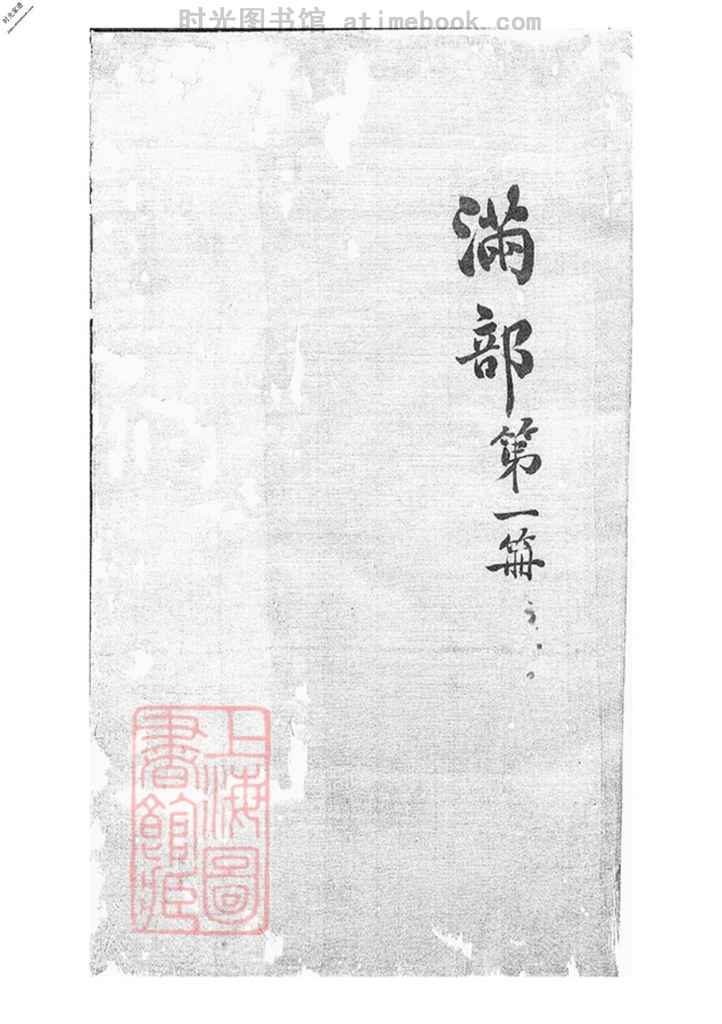 时光图书馆 atimebook.com
滿部第一冊
上海圖
書館藏